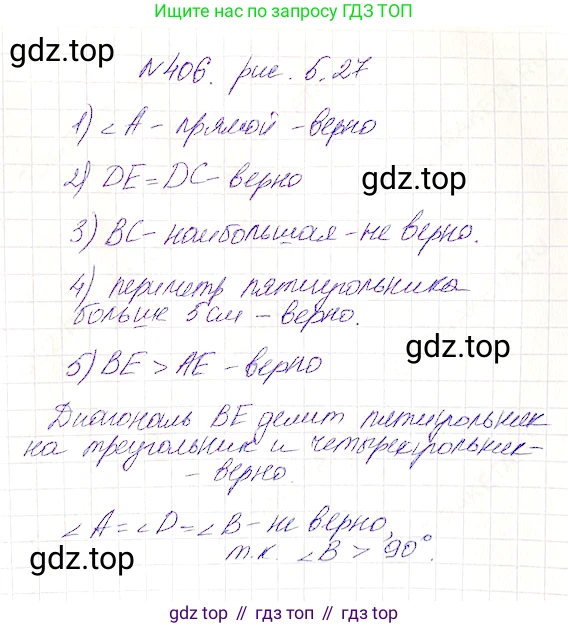 Ищите нас по запросу ГДЗ ТОП
gdz.top
№406. рис. 5.27
1) ∠A - прямой - верно
2) DE = DC - верно
gdz.top
3) BC - наибольшая - не верно.
4) периметр пятиугольника
больше 5 см - верно.
gdz.top
5) BE > AE - верно
Диагональ BE делит пятиугольник
на треугольник и четырехугольник -
- верно.
∠A = ∠D = ∠B - не верно,
т.к. ∠B > 90°.
gdz.top
gdz.top // гдз топ // гдз.top